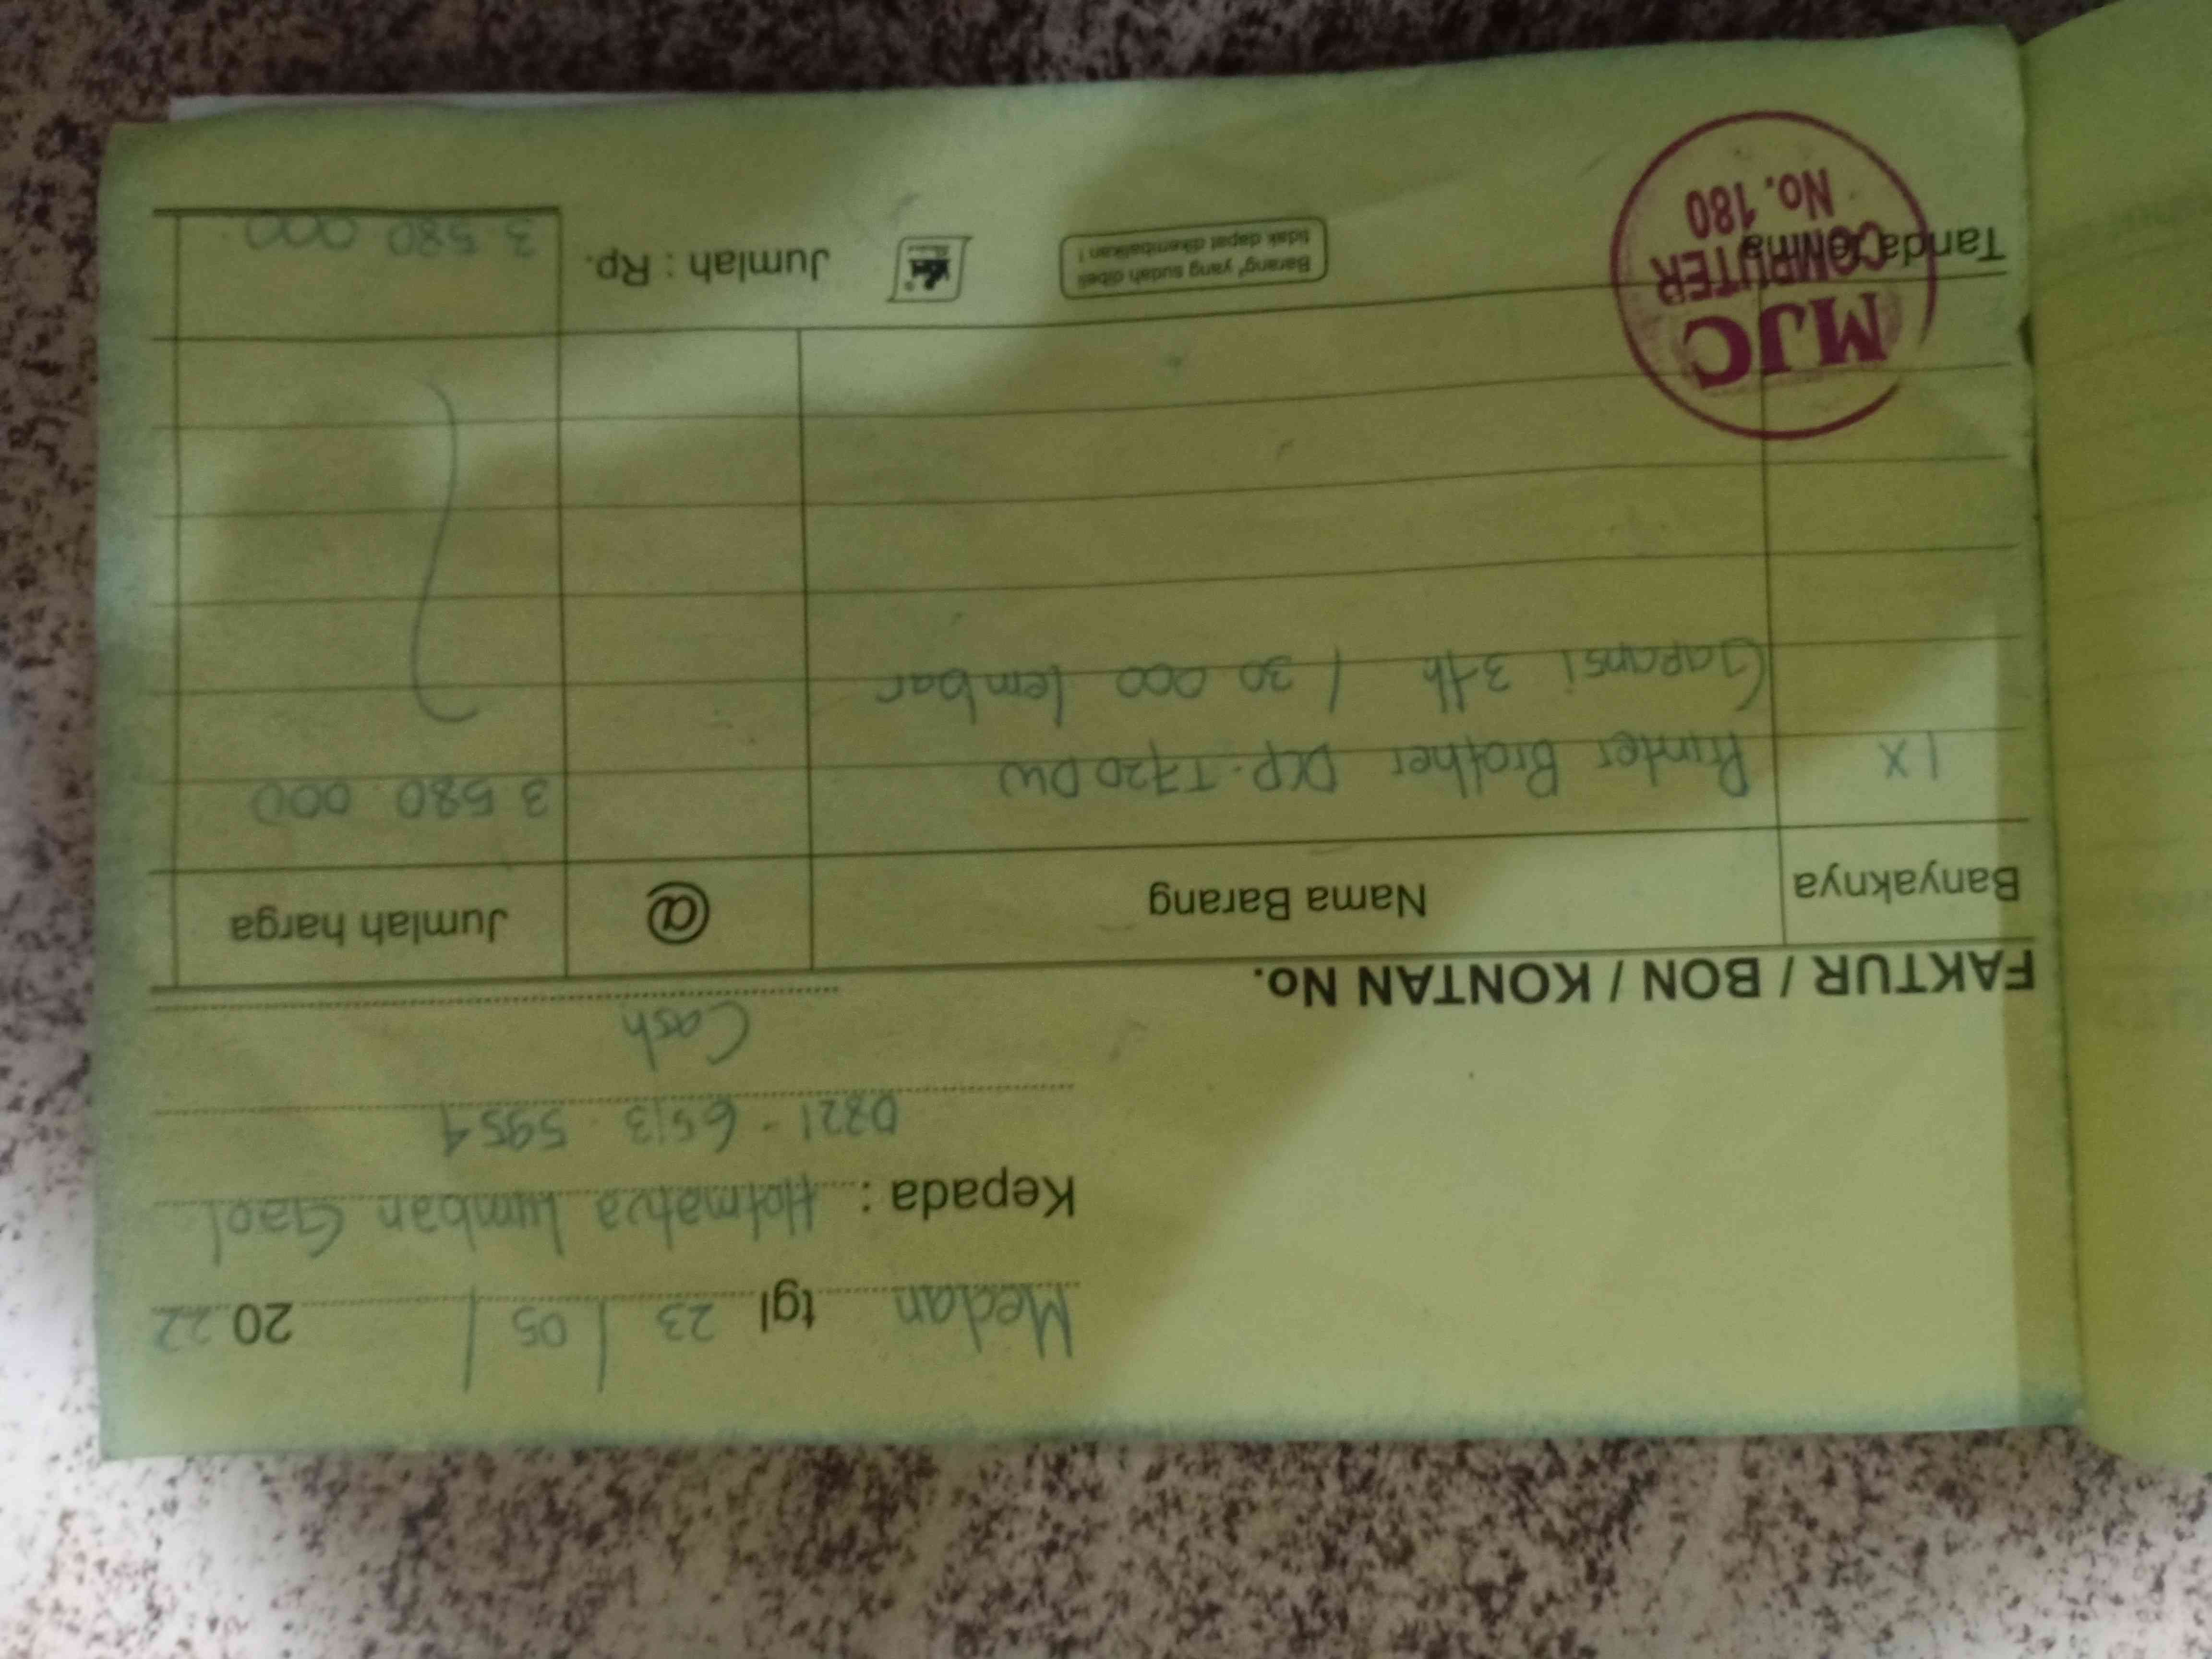 Medan tgl 23 / 05 / 2022
Kepada : Hotmatua Lumban Gaol
0821 - 6513 5954
Cash
FAKTUR / BON / KONTAN No.
Banyaknya Nama Barang @ Jumlah harga
1 X Printer Brother DCP-T720DW 3 580 000
Garansi 3 th / 30 000 lembar
Tanda terima Barang² yang sudah dibeli Jumlah : Rp. 3 580 000
tidak dapat dikembalikan !
MJC
COMPUTER
No. 180